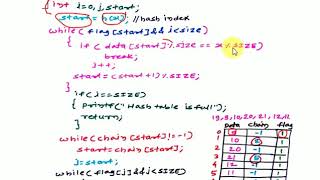 { int i=0, j, start;
start = h(x); // hash index
while( flag[start] && i<SIZE)
{ if ( data[start] % size == x % SIZE)
break;
i++;
start = (start+1) % SIZE;
}
if (i==SIZE)
{ printf("Hash table is full");
return;
}
while(chain[start]!=-1)
start=chain[start];
j=start;
while(flag[j] && i<SIZE)
19, 9, 10, 20, 21, 12, 11
data chain flag
0 -1 1
1 1
2 10 -1 1
3 21 1
4 20 -1 1
5 12 -1 1